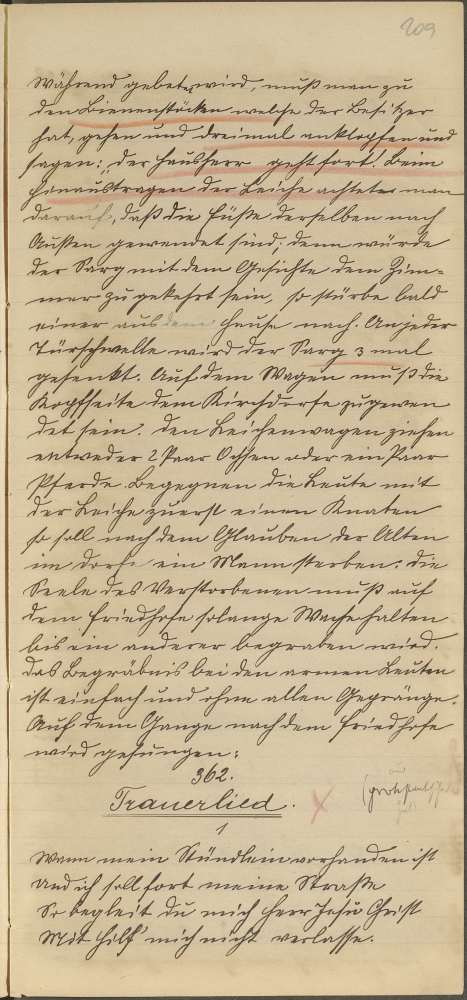 209
Während gebetet wird, muß man zu
den Bienenstöcken welche der Besitzer
hat, gehen und dreimal anklopfen und
sagen: "der Hausherr geht fort! Beim
Hinaustragen der Leiche achtete man
darauf, daß die Füße derselben nach
Außen gewendet sind, denn würde
der Sarg mit dem Gesichte dem Zim-
mer zugekehrt sein, so stürbe bald
einer aus dem Hause nach. An jeder
Türschwelle wird der Sarg 3 mal
gesenkt. Auf dem Wagen muß die
Kopfseite dem Kirchdorfe zugewen
det sein. Den Leichenwagen ziehen
entweder 2 Paar Ochsen oder ein Paar
Pferde. Begegnen die Leute mit
der Leiche zuerst einen Knaben
so soll nach dem Glauben der Alten
im Dorfe ein Mann sterben. Die
Seele des Verstorbenen muß auf
dem Friedhofe solange Wache halten
bis ein anderer begraben wird.
Das Begräbnis bei den armen Leuten
ist einfach und ohne allen Gepränge.
Auf dem Gange nach dem Friedhofe
wird gesungen:
362.
Trauerlied.
1
Wann mein Stündlein vorhanden ist
und ich soll fort meine Straße
So begleit du mich Herr Jesu Christ
Mit Hilf' mich nicht verlasse.